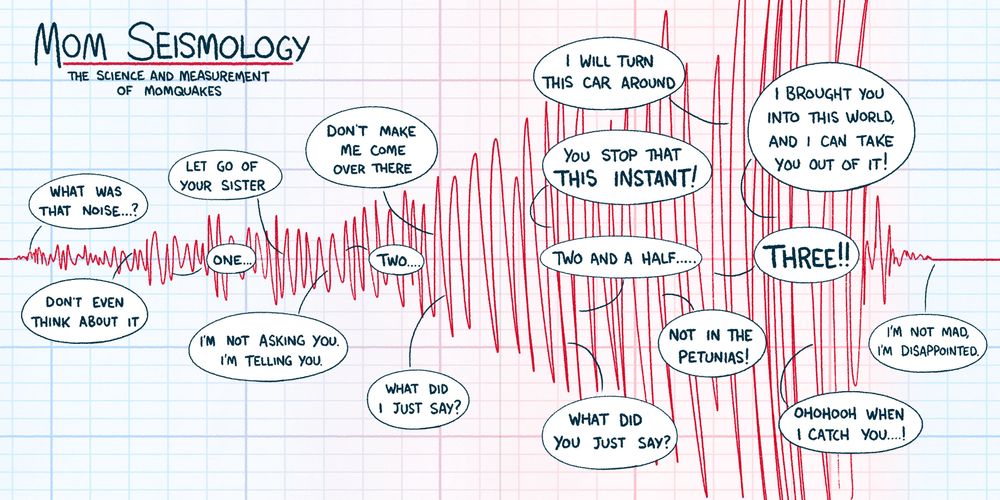 MOM SEISMOLOGY
THE SCIENCE AND MEASUREMENT
OF MOMQUAKES
WHAT WAS
THAT NOISE...?
DON'T EVEN
THINK ABOUT IT
LET GO OF
YOUR SISTER
ONE...
I'M NOT ASKING YOU.
I'M TELLING YOU.
DON'T MAKE
ME COME
OVER THERE
TWO....
WHAT DID
I JUST SAY?
I WILL TURN
THIS CAR AROUND
YOU STOP THAT
THIS INSTANT!
TWO AND A HALF.....
WHAT DID
YOU JUST SAY?
NOT IN THE
PETUNIAS!
I BROUGHT YOU
INTO THIS WORLD,
AND I CAN TAKE
YOU OUT OF IT!
THREE!!
OHOHOOH WHEN
I CATCH YOU....!
I'M NOT MAD,
I'M DISAPPOINTED.